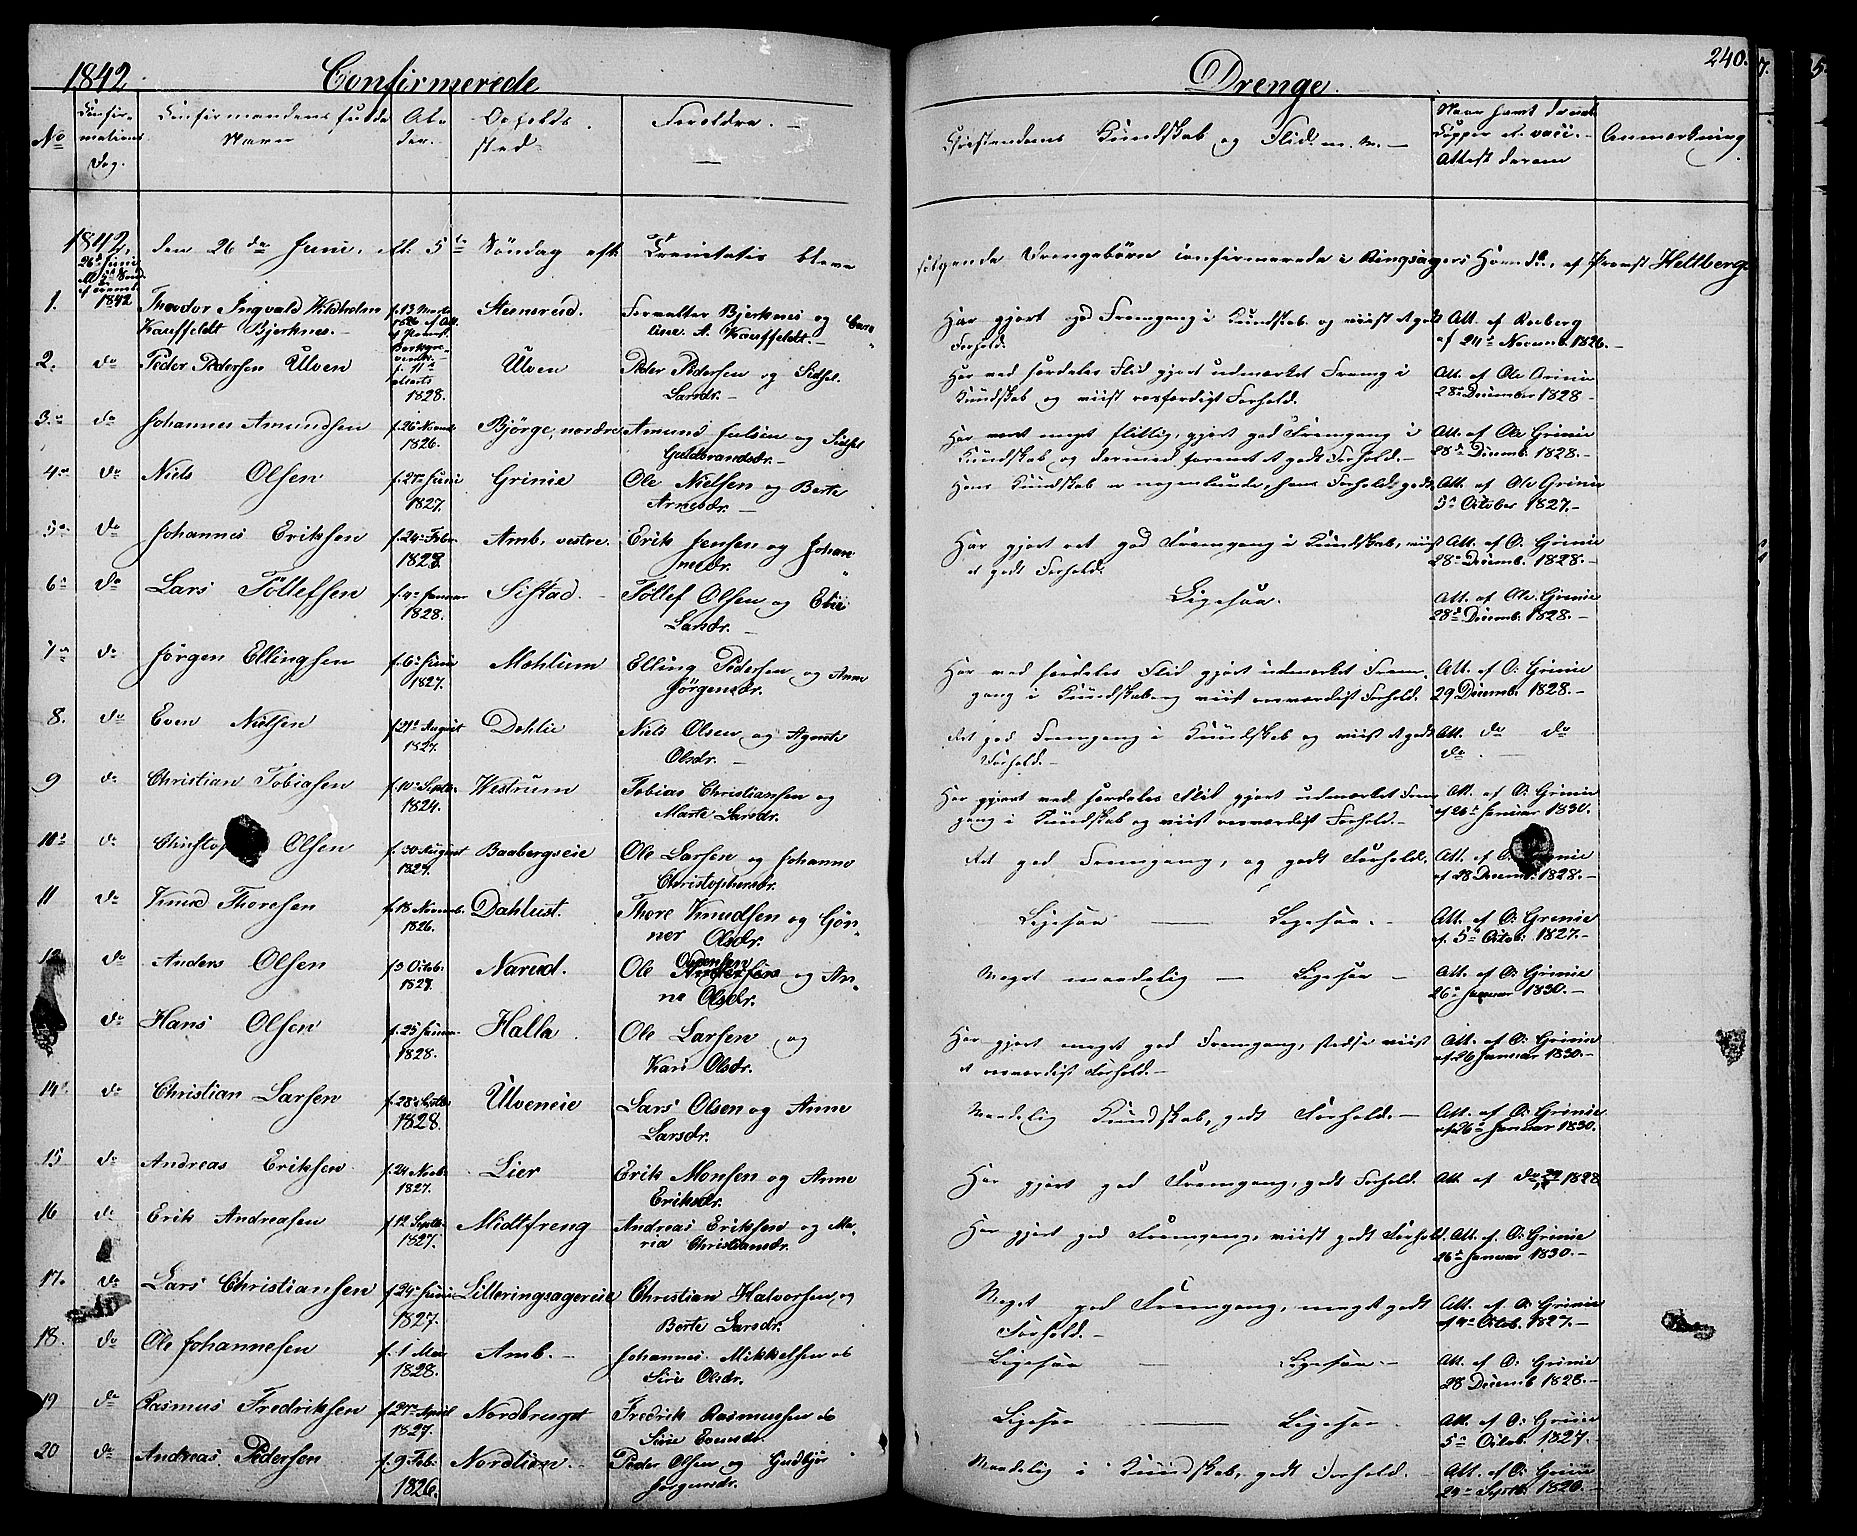 1842 Confirmerede Drenge. 240.
No Confirmations Dag. Confirmandens fulde Navn Alder. Opholdssted Forældre. Christendoms Kundskab og Flid m. m. Naar havt Koepper el. vacc. Attest derom Anmærkning
1842, den 26de Juni, 5te Søndag eft. Trinitatis bleve følgende Drengebørn confirmerede i Ringsagers Hovedk. af Provst Heltberg
1. 1842 Theodor Ingvald
Kauffeldt Bjerknes. Steensrud. Forvalter Bjerknes og
A. Kauffeldt. Har gjort god Fremgang i Kundskab og viist et godt
Forhold. Att. af
af 24de Novemb. 1826.
2. do Peder Pedersen Ulven
1828. Ulven Peder Pedersen og Sidsel
Larsdr. Har med særdeles Flid gjort udmærket Fremg. i
Kundskab og viist rosværdigt Forhold. Att. af Ole Grinie
28de December 1828
3. do Johannes Amundsen f. 26 Novemb.
1826. Bjørge, nordre Amund Julsen og Sidsel
Guldbrandsdr. Har været meget flittig, gjort god Fremgang i
Kundskab og dermed forenet et godt Forhold. Att. af Ole Grinie
28de Decemb. 1828.
4. do Niels Olsen f. 27 Juni
1827. Grinie Ole Nielsen og Berte
Arnesdr. Hans Kundskab er nogenlunde, hans Forhold godt. Att. af Ole Grinie
5te October 1827.
5. do Johannes Eriksen f. 24 Febr.
1828. Amb, vestre. Erik Jensen og Johan
nesdr. Har gjort ret god Fremgang i Kundskab, viist
et godt Forhold. Att. af O. Grinie
28de Decemb. 1828.
6. do Lars Tollefsen f. 4 Januar
1828. Sistad. Tollef Olsen og Eli
Larsdr. Ligesaa. Att. af Ole Grinie
28de Decemb. 1828.
7. do Jørgen Ellingsen f. 6 Juni
1827. Mæhlum Elling Pedersen og Anne
Jørgensdr. Har med særdeles Flid gjort udmærket Frem-
gang i Kundskab og viist rosværdigt Forhold. Att. af O. Grinie
29 Decemb. 1828.
8. do Even Nielsen f. 21 August
1827. Dahlie Niels Olsen og Agnete
Olsdr. Ret god Fremgang i Kundskab og viist et godt
Forhold. Att. do do
do.
9 do Christian Tobiasen f. 10 Septb.
1824. Westrum Tobias Christiansen og
Marte Larsdr. Har gjort med særdeles Flid gjort udmærket Frem
gang i Kundskab og viist rosværdigt Forhold. Att. af O. Grinie
af 26de Januar 1830.
10 do Christop Olsen f. 30 August
1827. Baabergseie Ole Larsen og Johanne
Christophersdr. Ret god Fremgang, og godt Forhold. Att. af O. Grinie
af 28 Decemb. 1828.
11 do Knud Thoresen f. 18 Novemb.
1826. Dahlust. Thore Knudsen og Gøn-
ner Olsdr. Ligesaa Ligesaa. Att. af O. Grinie
af. 5te Octob. 1827.
12 do Anders Olsen f. 3 Octob.
1827. Narud. Ole og An-
ne Olsdr. Meget maadelig Ligesaa Att. af O. Grinie
26de Januar 1830.
do Hans Olsen f. 25 Januar
1828. Halla. Ole Larsen og
Kari Olsdr. Har gjort meget god Fremgang, stedse viist
et rosværdigt Forhold. Att. af O. Grinie
af 26 Januar 1830.
14 do Christian Larsen f. 28 Septb.
1828. Ulveneie Lars Olsen og Anne
Larsdr. Maadelig Kundskab, godt Forhold. Att. af O. Grinie
af 26de Januar 1830.
15 do Andreas Eriksen f. 24 Novb.
1827. Lier Erik Monsen og Anne
Eriksdr. Har gjort god Fremgang, godt Forhold. Att. af do 1828
16 do Erik Andreasen f. 12 Septb.
1827. Midtfreng Andreas Eriksen og Ma-
ria Christiansdr. Har gjort god Fremgang, viist godt Forhold. Att. af O. Grinie
26de Januar 1830.
17. do Lars Christiansen f. 24 Juni
1827. Litleringsagereie Christian Halvorsen og
Berte Larsdr. Meget god Fremgang, meget godt
Forhold. Att. af O. Grinie
af 4de Octob. 1827.
18. do Ole Johannesen f. 1 Mai
1828. Amb. Johannes Mikkelsen og
Siri Olsdr. Ligesaa Ligesaa. Att. af O. Grinie
28 Decemb 1828.
19 do Rasmus Fredriksen f. 27 April
1827. Nordbruget Fredrik Rasmussen og
Siri Evensdr. Ligesaa Ligesaa. Att. af O. Grinie
5te Octob. 1827.
20 do Andreas Pedersen f. 9 Feb.
1826. Nordlien. Peder Olsen og Gudbjør
Jørgensdr. Maadelig i Kundskab, godt Forhold. Att. af O. Grinie